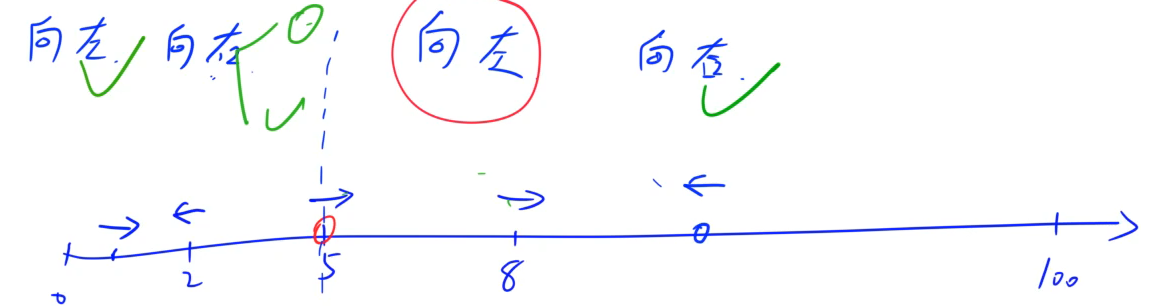 向左 向右 向左 向右
0 2 5 8 100